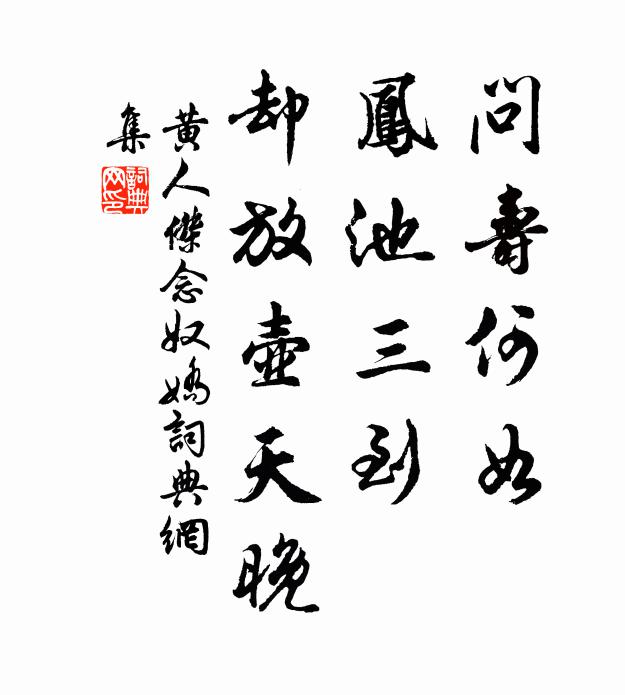 問壽何如
鳳池三到
却放壺天晚
黃人傑念奴嬌詞典網
集
詞典网印